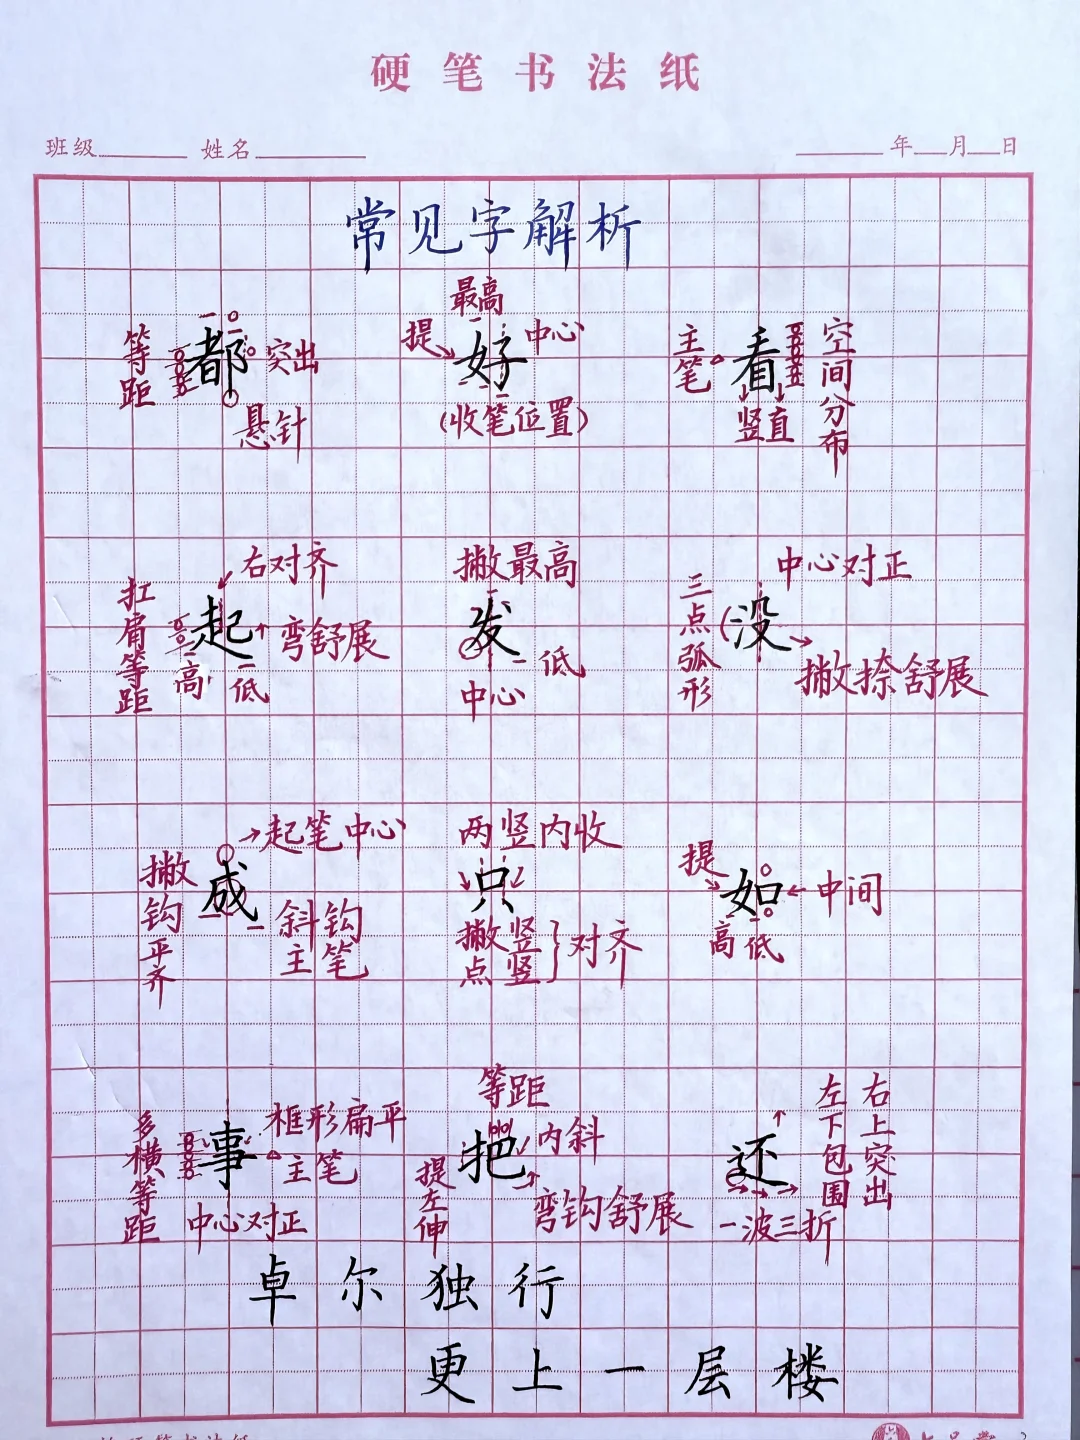 硬笔书法纸
班级 姓名 年 月 日
常见字解析
等距 都 突出 悬针
最高 提 好 中心 (收笔位置)
主笔 看 空间分布 竖直
扛肩等距 起 右对齐 弯舒展 高 低
撇最高 发 低 中心
三点弧形 没 中心对正 撇捺舒展
撇钩平齐 成 起笔中心 斜钩主笔
两竖内收 只 撇竖点竖}对齐
提 如 中间 高低
多横等距 事 框形扁平 主笔 中心对正
等距 把 内斜 提左伸 弯钩舒展
还 左下包围 右上突出 一波三折
卓尔独行
更上一层楼